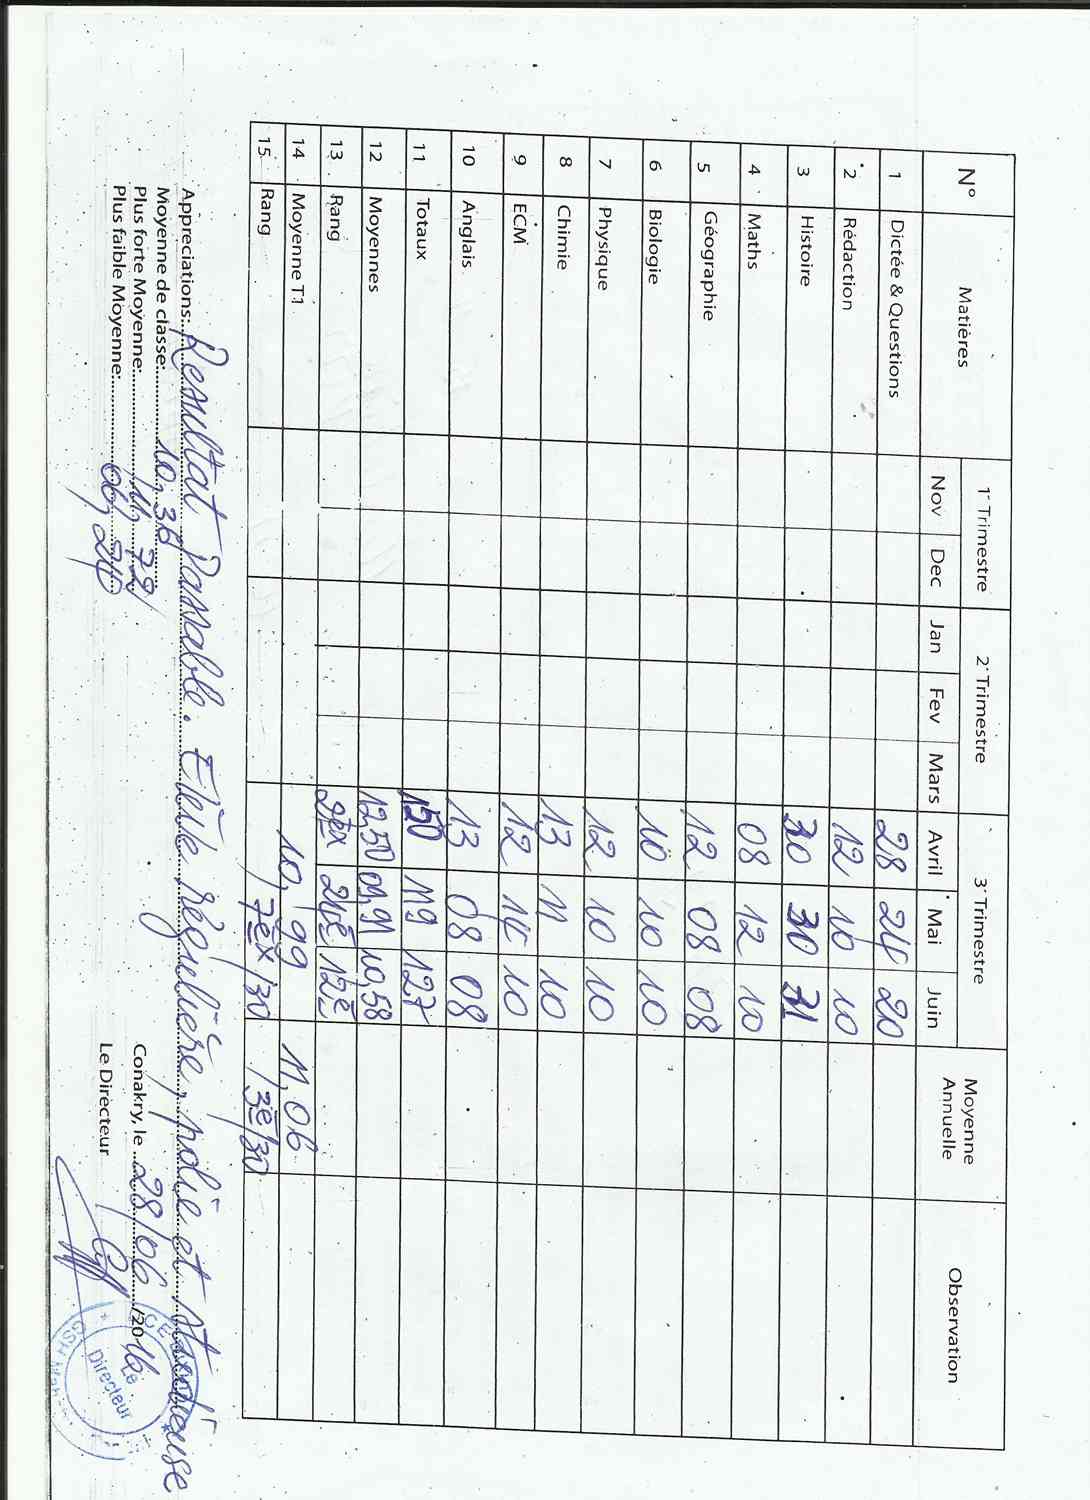 N° Matières 1er Trimestre 2e Trimestre 3e Trimestre Moyenne Annuelle Observation
Nov Dec Jan Fev Mars Avril Mai Juin
1 Dictée & Questions 28 24 20
2 Rédaction 12 10 10
3 Histoire 30 30 31
4 Maths 08 12 10
5 Géographie 12 08 08
6 Biologie 10 10 10
7 Physique 12 10 10
8 Chimie 13 11 10
9 ECM 12 14 10
10 Anglais 13 08 08
11 Totaux 150 119 127
12 Moyennes 12,50 09,91 10,58
13 Rang 2ex 24è 12è
14 Moyenne T1 10,99 11,06
15 Rang 7ex/30 13è/30
Appreciations: Resultat Passable. Elève régulière, polie et studieuse
Moyenne de classe: 10,36
Plus forte Moyenne: 11,72
Plus faible Moyenne: 06,24
Conakry, le 28/06 /2016
Le Directeur
Le
Directeur